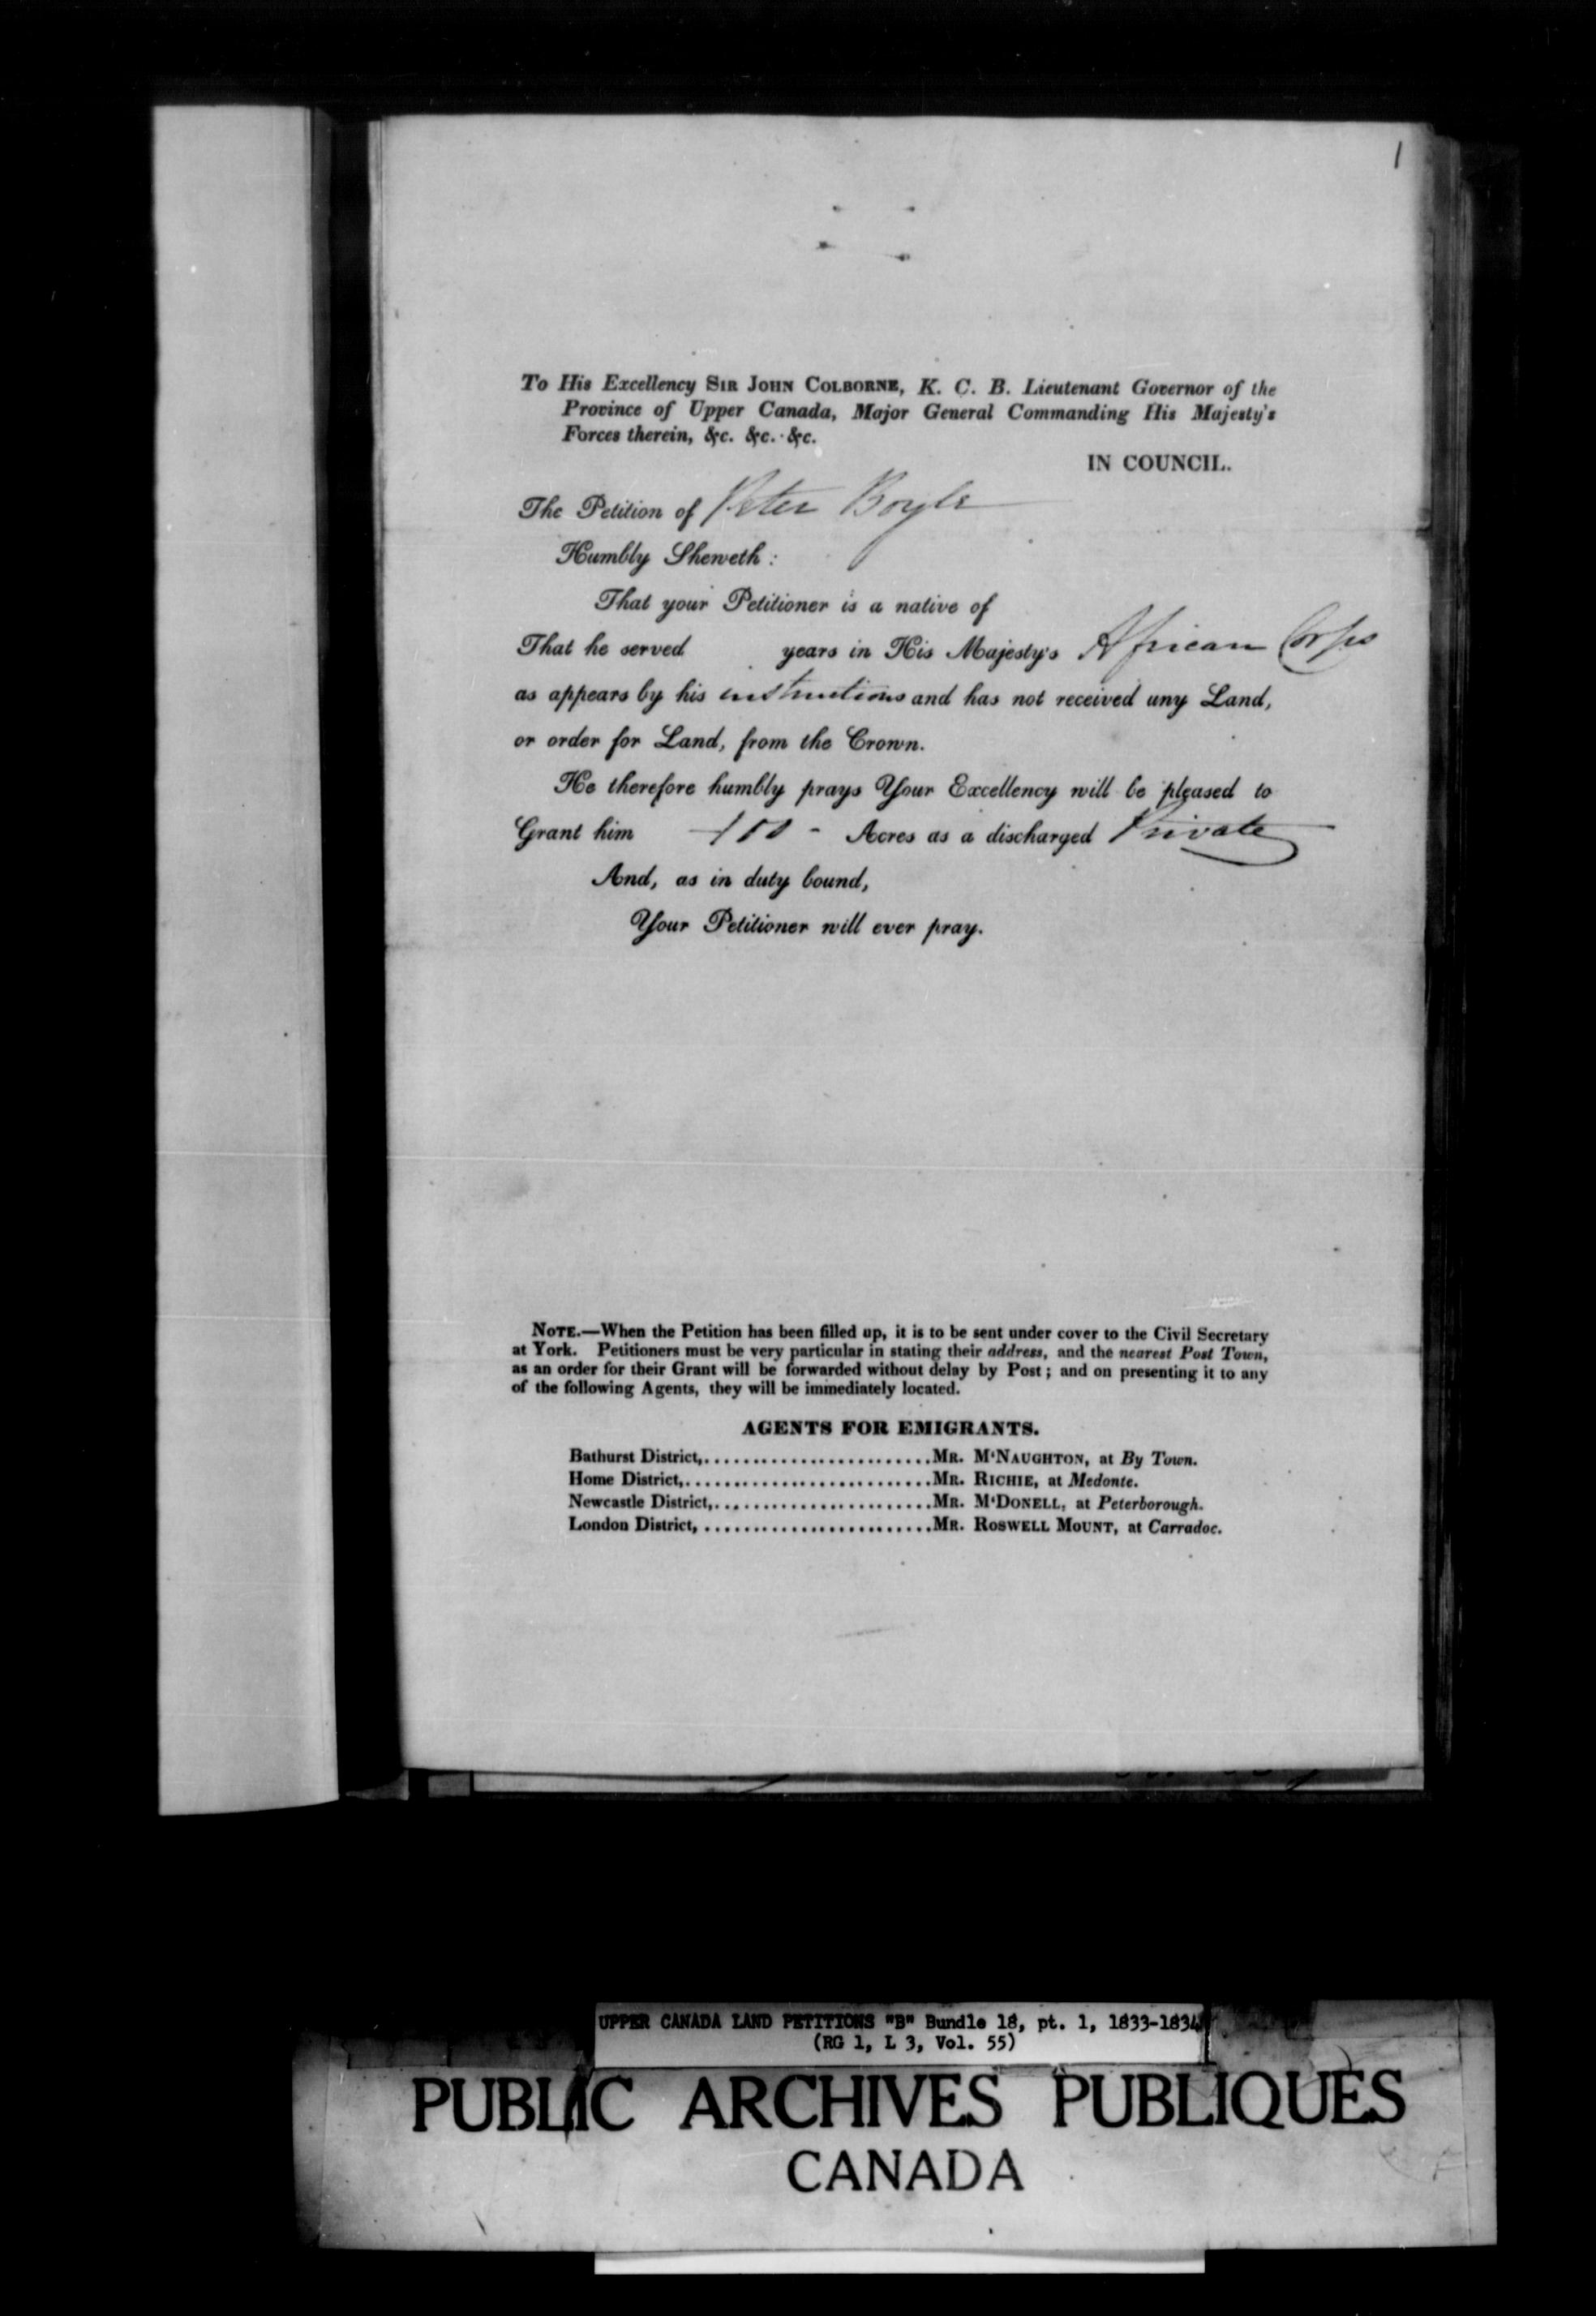 1
To His Excellency SIR JOHN COLBORNE, K. C. B. Lieutenant Governor of the
Province of Upper Canada, Major General Commanding His Majesty's
Forces therein, &c. &c. &c.
IN COUNCIL.
The Petition of Peter Boyle
Humbly Sheweth:
That your Petitioner is a native of
That he served years in His Majesty's African Corps
as appears by his instructions and has not received any Land,
or order for Land, from the Crown.
He therefore humbly prays Your Excellency will be pleased to
Grant him 100 - Acres as a discharged Private
And, as in duty bound,
Your Petitioner will ever pray.
NOTE.—When the Petition has been filled up, it is to be sent under cover to the Civil Secretary
at York. Petitioners must be very particular in stating their address, and the nearest Post Town,
as an order for their Grant will be forwarded without delay by Post; and on presenting it to any
of the following Agents, they will be immediately located.
AGENTS FOR EMIGRANTS.
Bathurst District,........................MR. M'NAUGHTON, at By Town.
Home District,..........................MR. RICHIE, at Medonte.
Newcastle District,.......................MR. M'DONELL, at Peterborough.
London District, ........................MR. ROSWELL MOUNT, at Carradoc.
UPPER CANADA LAND PETITIONS "B" Bundle 18, pt. 1, 1833-1834
(RG 1, L 3, Vol. 55)
PUBLIC ARCHIVES PUBLIQUES
CANADA